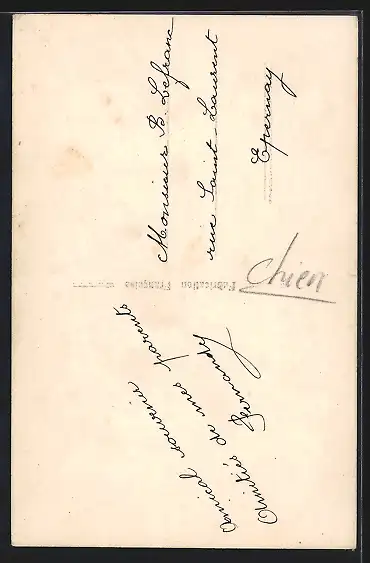 Amical souvenir
Amitiés de mes parents
Germandy
Fabrication Française
Monsieur B. Lefranc
rue Saint-Laurent
Epernay
chien